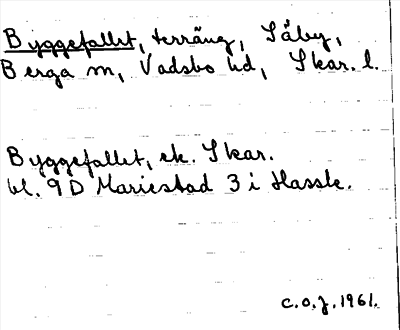 Byggefallet, terräng, Säby,
Berga sn, Vadsbo hd, Skar. l.
Byggefallet, ek. Skar.
bl. 9D Mariestad 3 i Hassle.
c.o.j. 1961.